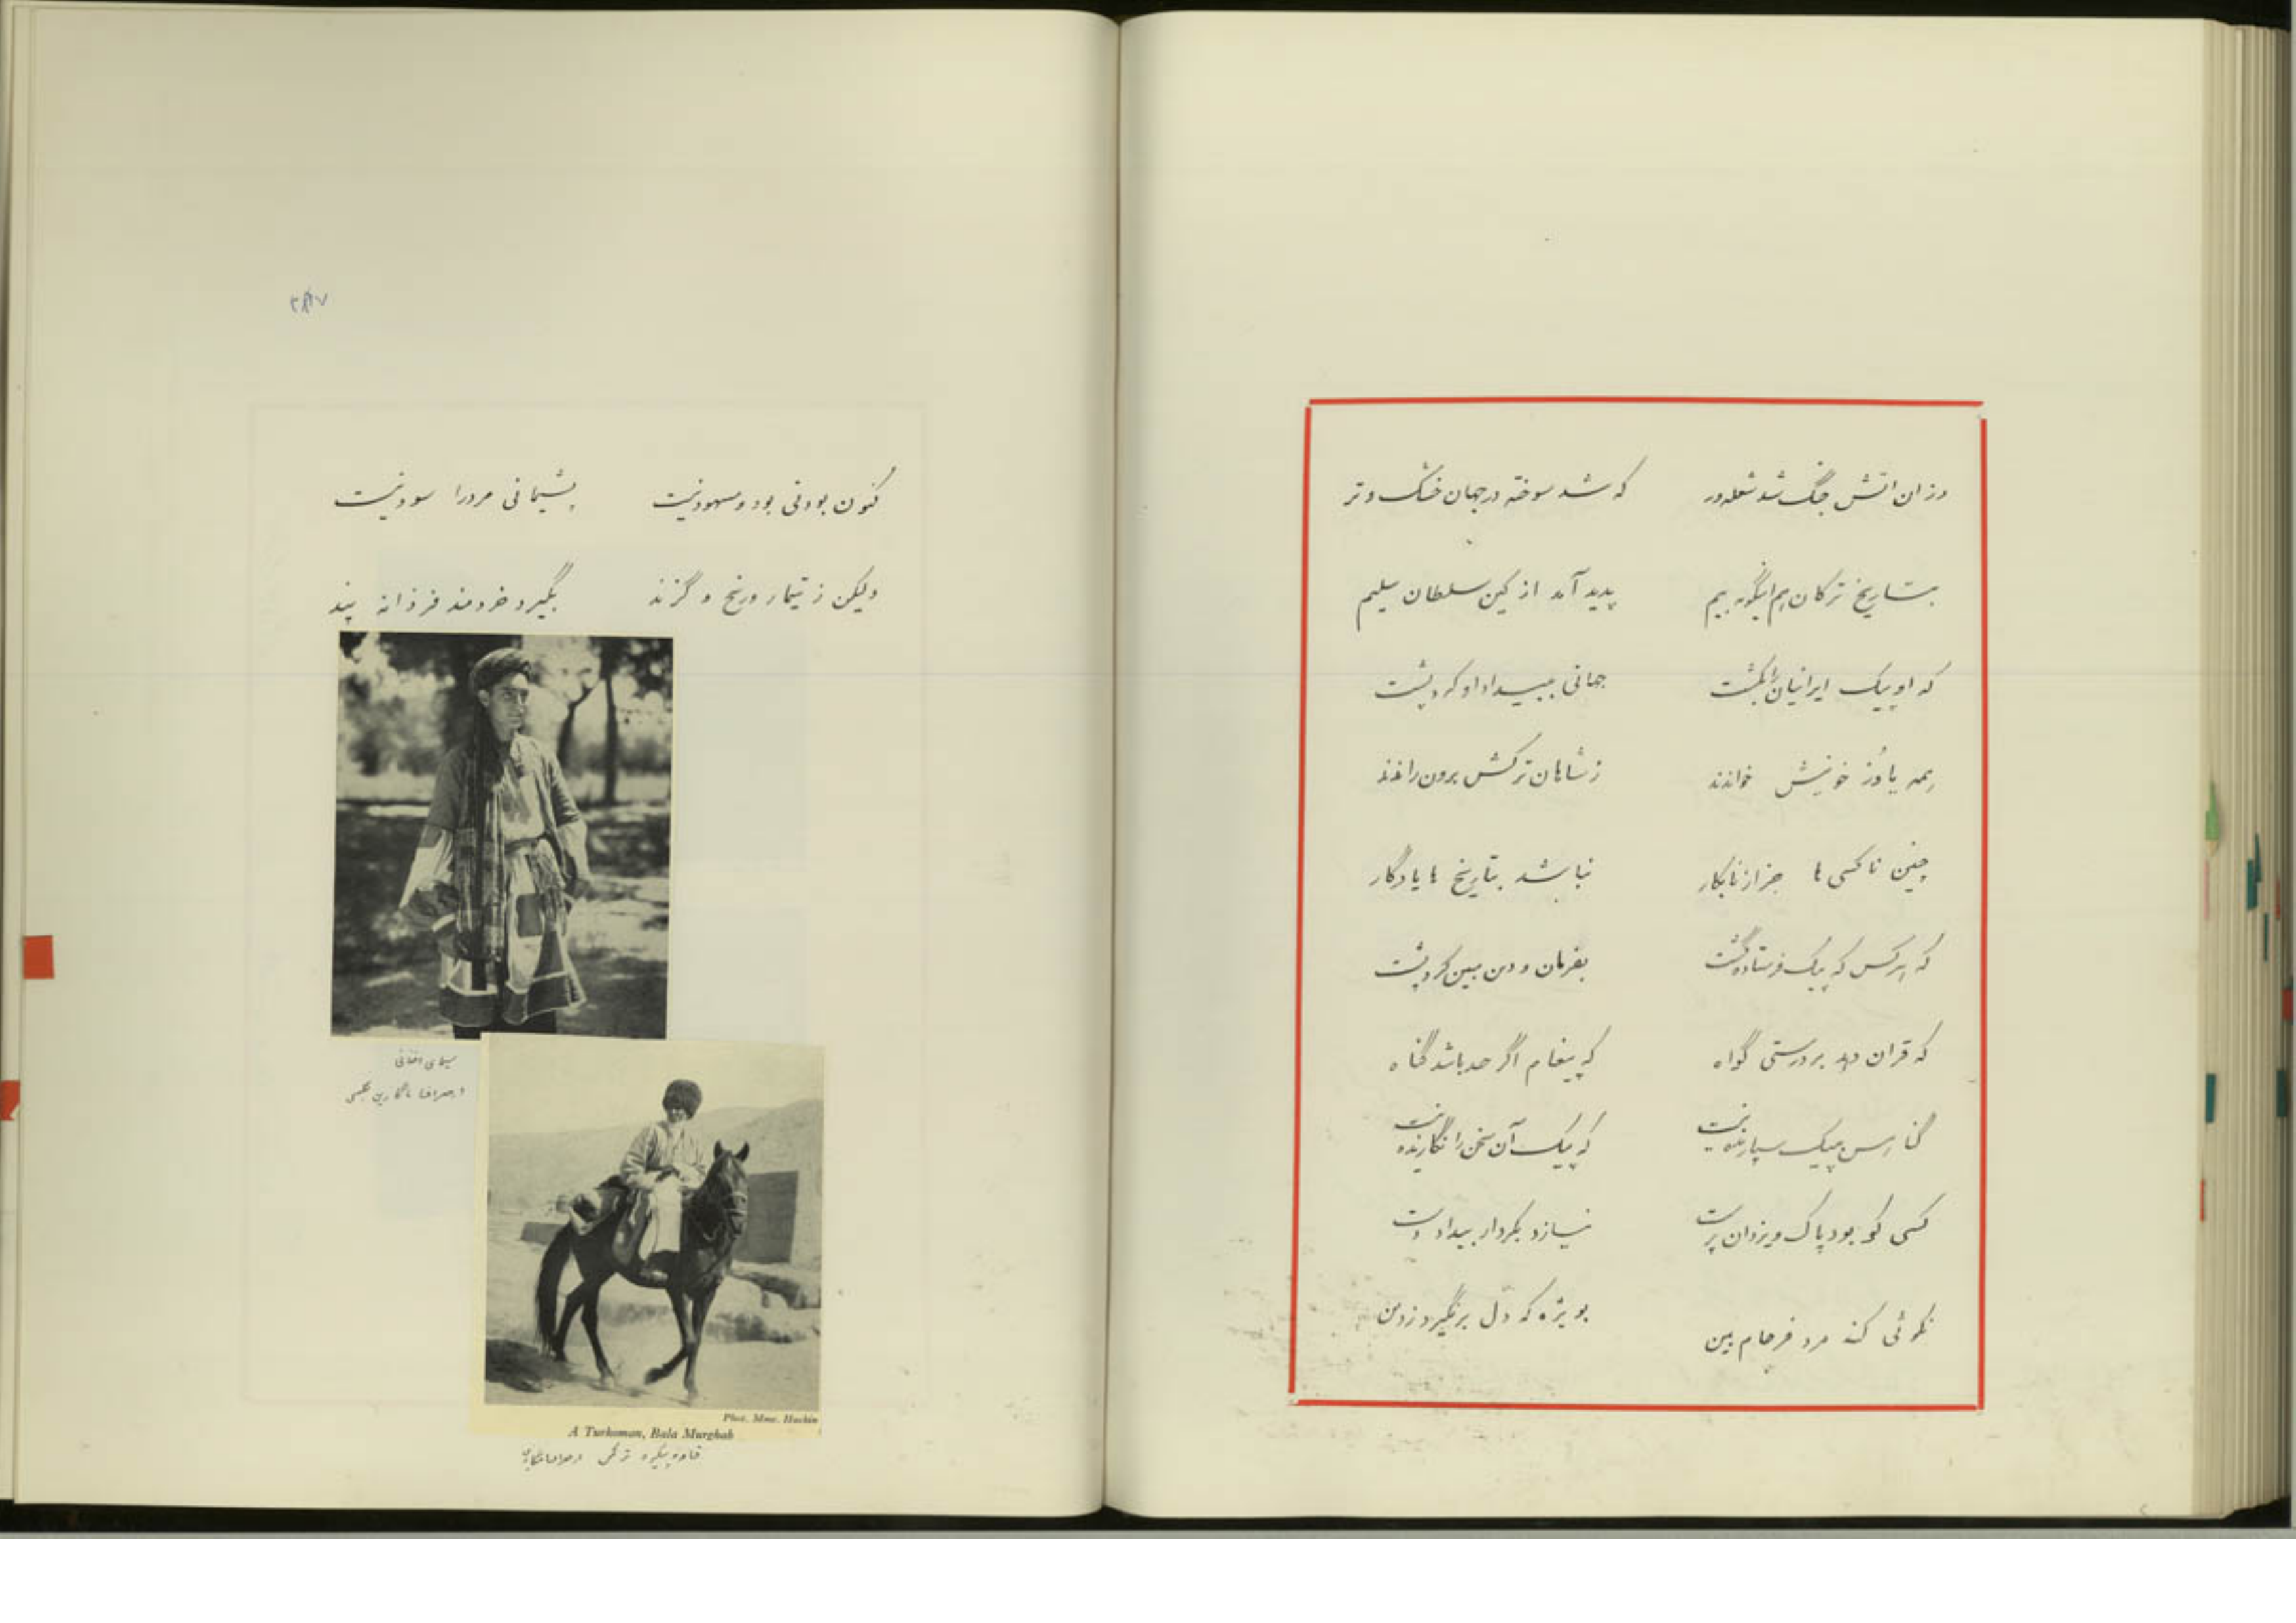 وزان آتش جنگ شد شعله‌ور که شد سوخته در جهان خشک و تر
بتاریخ ترکان هم اینگونه بیم پدید آمد از کین سلطان سلیم
که او پیک ایرانیان را بکشت جهانی ببیداد او کرد پشت
همه یا دز خونیش خواندند ز شاهان ترکش برون راندند
چنین ناکسی ها جز از نابکار نباشد بتاریخ ها یادگار
که هر کس که پیک فرستاده کشت بفرمان و دین مبین کرد پشت
که قران دهد بر درستی گواه که پیغام اگر حد باشد گناه
گناه پیک سپارنده نیست که پیک آن سخن را نگارنده نیست
کسی کو بود پاک و یزدان پرست نیازد بکردار بیداد دست
نکوئی کند مرد فرجام بین بویژه که دل برنگیرد ز دین
۲۸۷
کنون بودنی بود و مسهود نیست پشیمانی مرد را سود نیست
ولیکن ز تیمار و رنج و گزند بگیرد خردمند فرزانه پند
سیمای افغانی
Phot. Mme. Hackin
A Turkoman, Bala Murghab